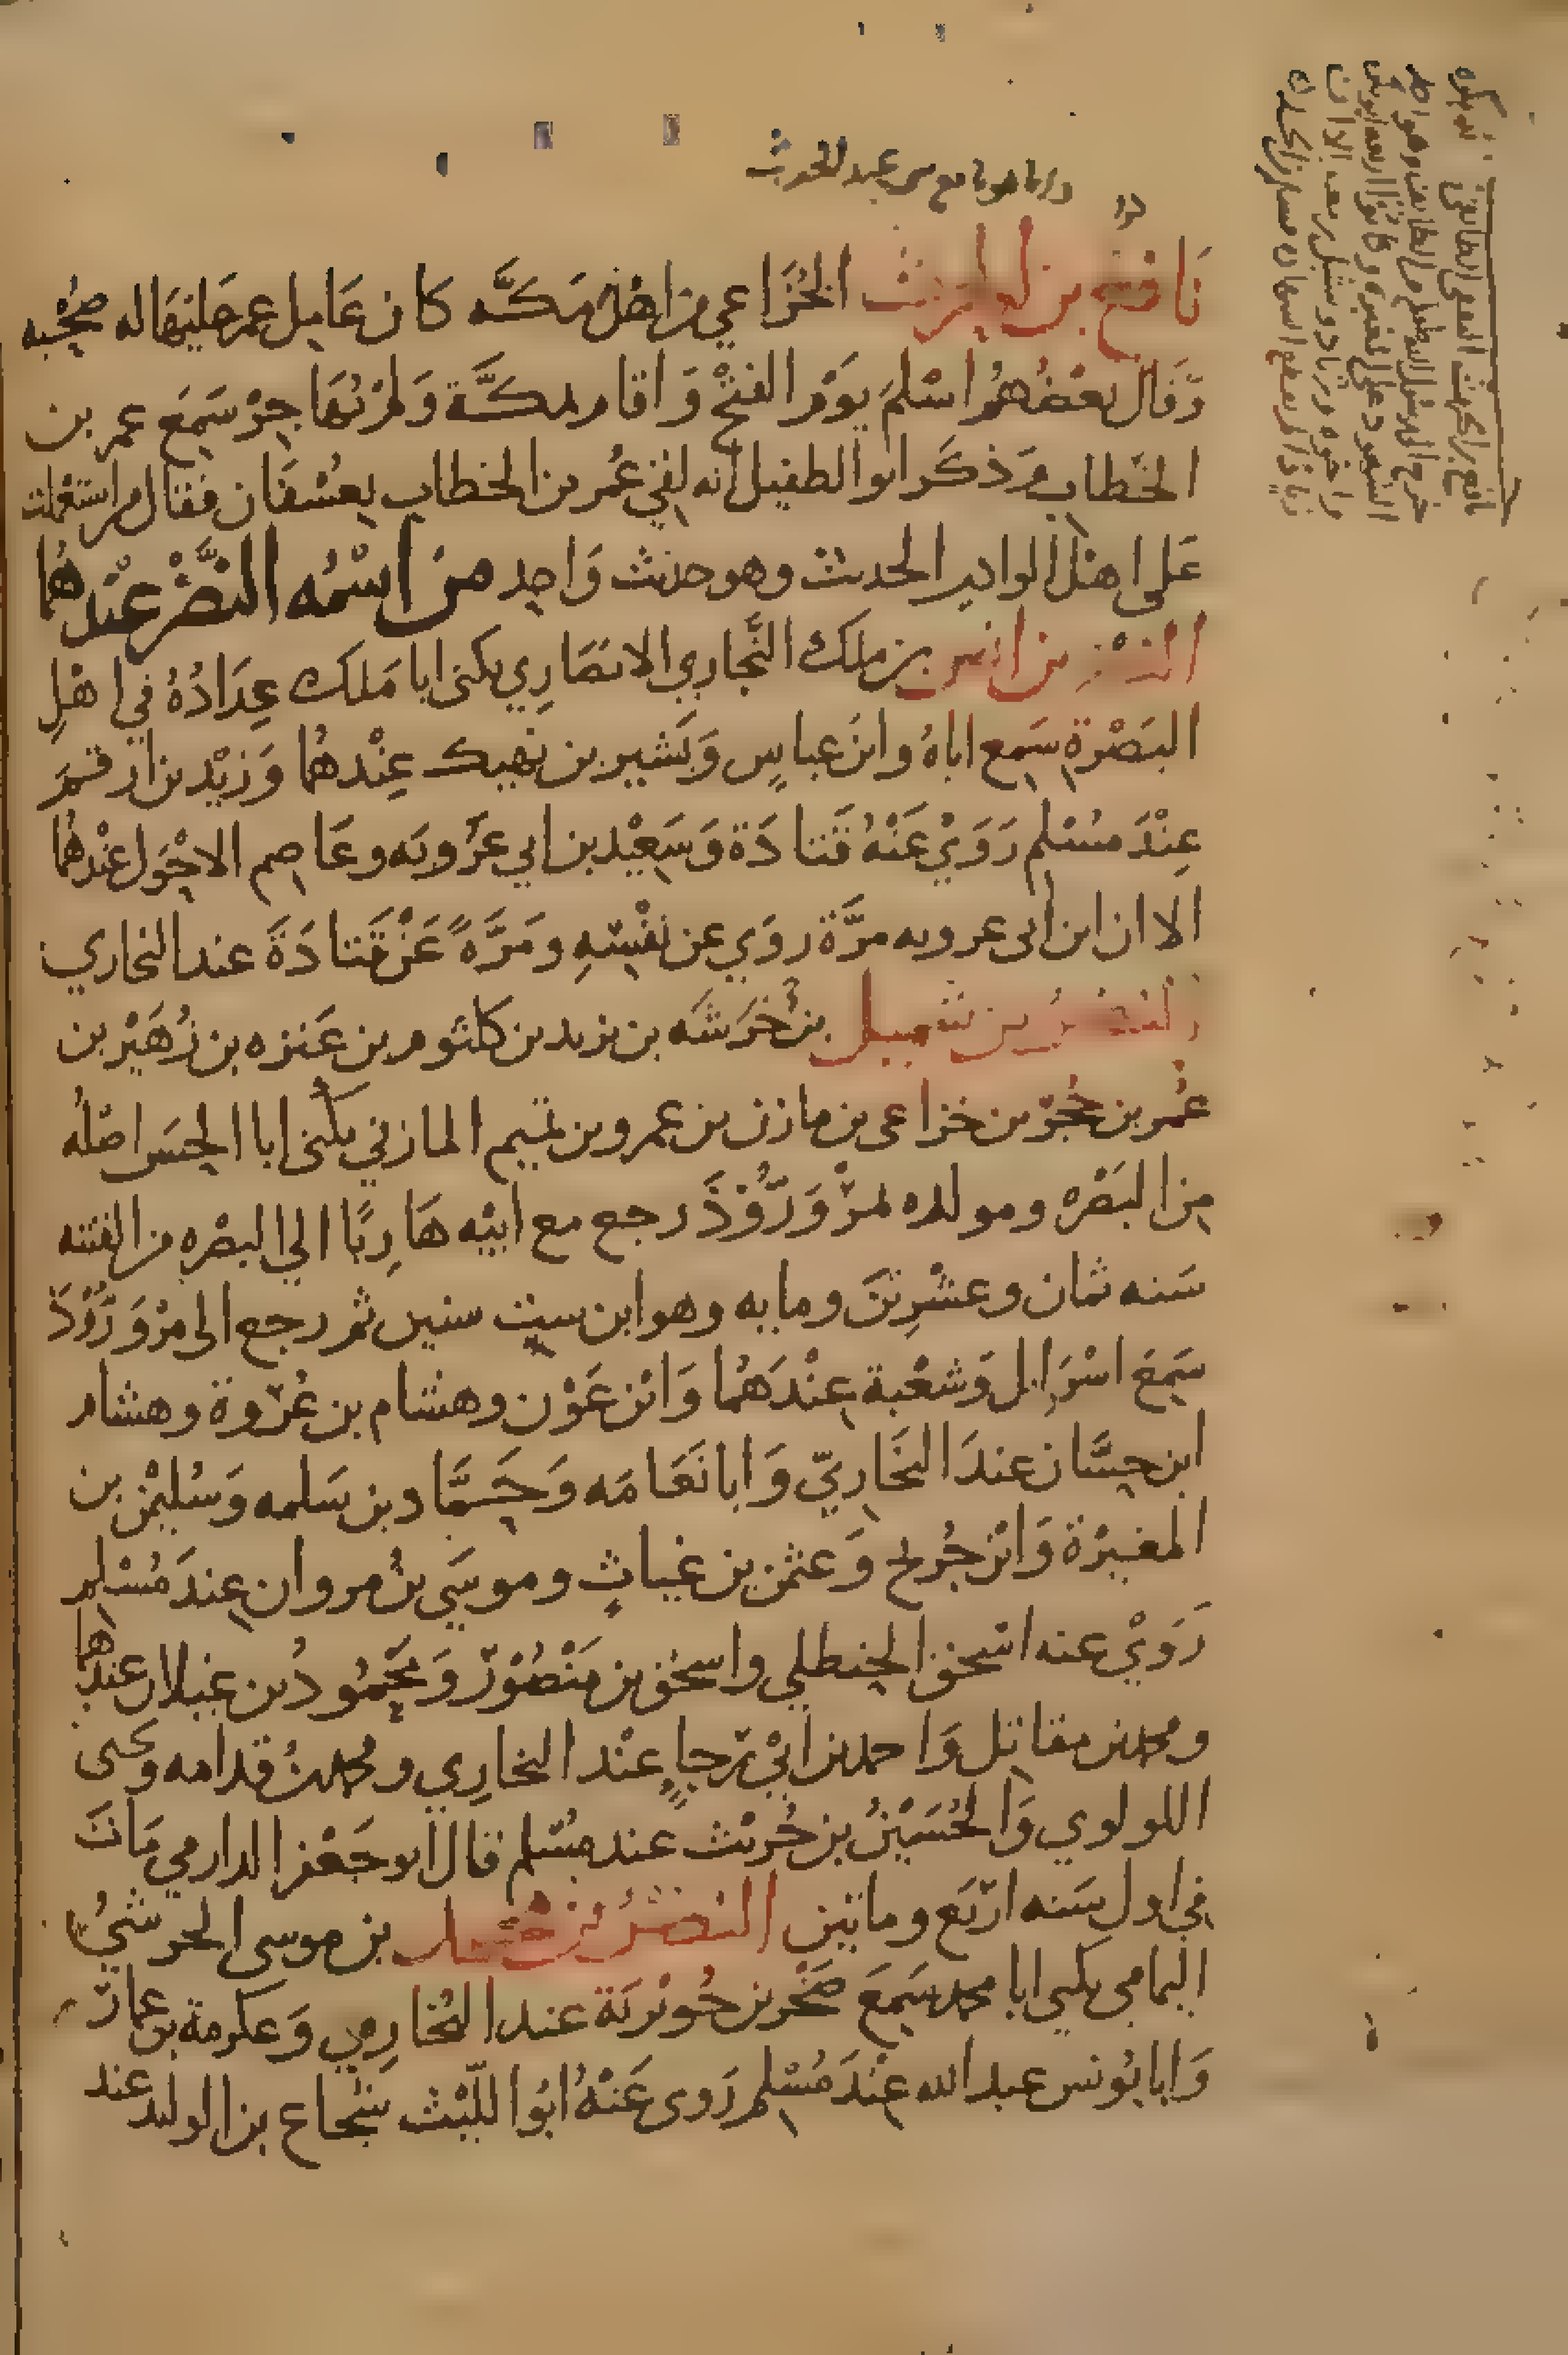 نَافِعُ بن عبد الحرث الخُزَاعي من اهْل مَكَّه كان عَامِل عمر عَليْهَا له صُحْبه
وَقَال بعْضُهُم اسْلَمَ يَوْم الفتْح وَاقام بمكَّة وَلم يُهَاجِرْ سَمِعَ عمر بن
الخَطاب وَذكَر ابو الطفيل انه لقي عُمر بن الخطاب بعُسْفَان فقال من استَعْملت
عَلى اهْل الوادي الحديث وهو حديث وَاحِد من اسْمُه النَّضْر عنْدهُما
النضْر بن انس بن ملك النَّجاري الانصَارِي يكنى ابا مَلك عِدَادُهُ في اهْلِ
البَصْرة سَمِع اباهُ وابنَ عباسٍ وَبَشير بن نهيك عِنْدهُما وَزيْد بن ارقمَ
عِنْدَ مسُلم رَوَيْ عَنْهُ قَتادَة وَسَعِيْد بن ابي عَرُوبَه وعَاصِم الاحْوَل عنْدهُما
الا ان ابن ابى عروبه مرَّة روَي عن نفْسِهِ ومَرَّةً عَنْ قَتادَةَ عند البخاري
النضْرُ بن شميل بن خَرَشَه بن يزيد بن كلثوم بن عَنزه بن زُهَيْر بن
عُمر بن حُجْر بن خزاعى بن مازن بن عمرو بن تميم المازني يكنى ابا الحسَن اصْلُه
مِن البَصْره ومولده بمرْوَرّوْذَ رجع مع ابيْه هَارِبًا الي البصْره من الفتنه
سَنه ثمان وعشْرِيْنَ ومايه وهو ابن سِت سنين ثم رجع الى مرْوَرَّوْذَ
سَمِعَ اسْرَايل وَشعْبة عِنْدَهُما وَابْن عَوْن وهشام بن عُرْوة وهشام
ابن حسَّان عندَ البخَارِيّ وَابا نَعَامَه وَحَمَّاد بن سَلمه وَسُليْمٰن بن
المغيْرة وَابْن جُريج وَعثمٰن بن غياثٍ وموسَي بنُ مروان عِندَ مُسْلم
رَوَيْ عنه اسْحق الحنظلي واسحق بن مَنْصُوْرٍ وَمَحْمُودُ بن غيلان عندهُما
ومحمد بن مقاتل وَاحمد بن ابيْ رَجاءٍ عنْد البخارِي ومحمد بنُ قدامه ويحيى
اللولوي وَالحُسَيْنُ بن حُريث عند مسُلم قال ابو جَعْفر الدارمي مَاتَ
في اول سَنه ارْبَع ومايتين النضْرُ بن محمد بن موسى الجرشيُّ
اليمامي يكني ابا محمد سَمِعَ صَخْر بن جُوَيْريَة عند البُخارِي وَعكرمة بن عمار
وَابا يُونس عبد الله عِنْدَ مُسْلم رَوى عَنْهُ ابُوا اللّيْث شجاع بن الوليد عند
نافع بن الحرث الثقفي الطائفي